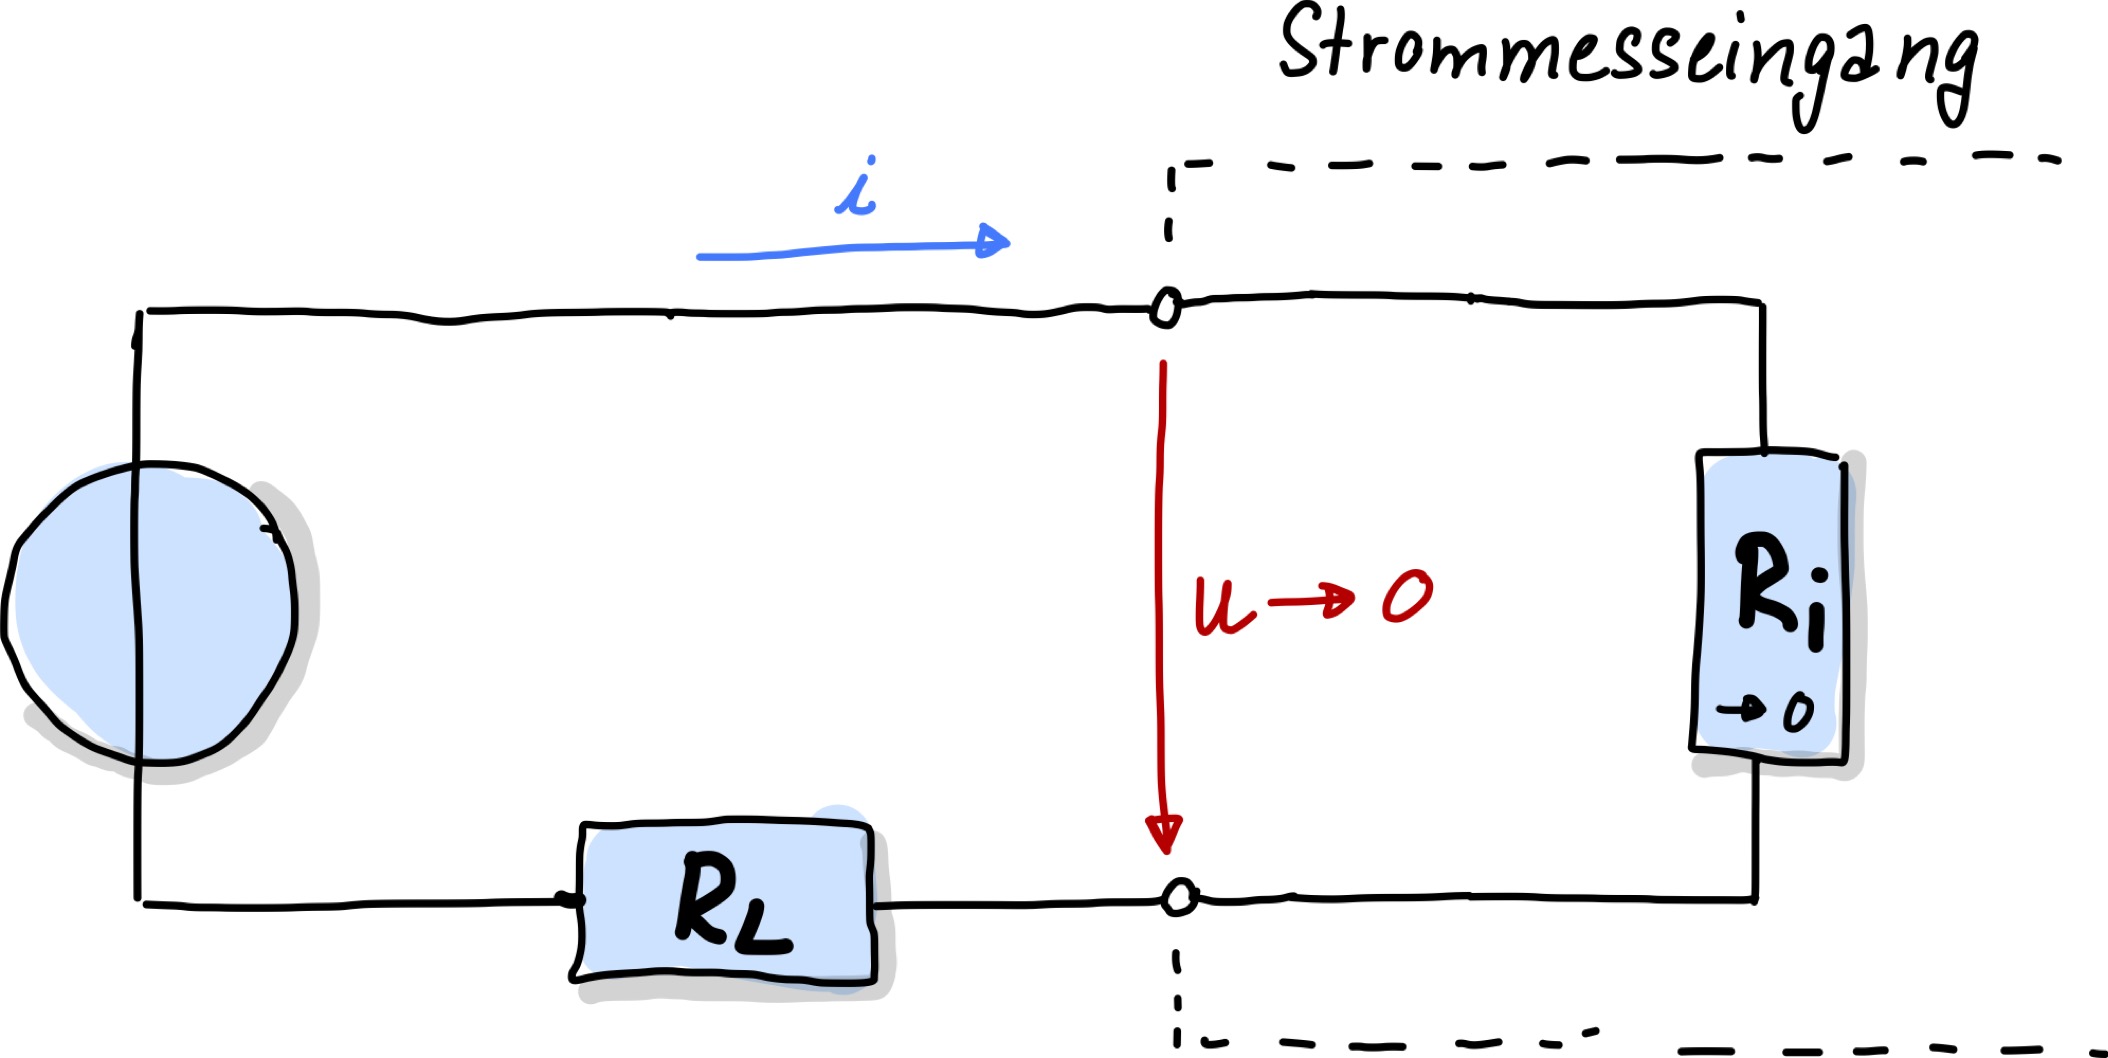 Strommesseingang
i
u → 0
Ri
→ 0
RL